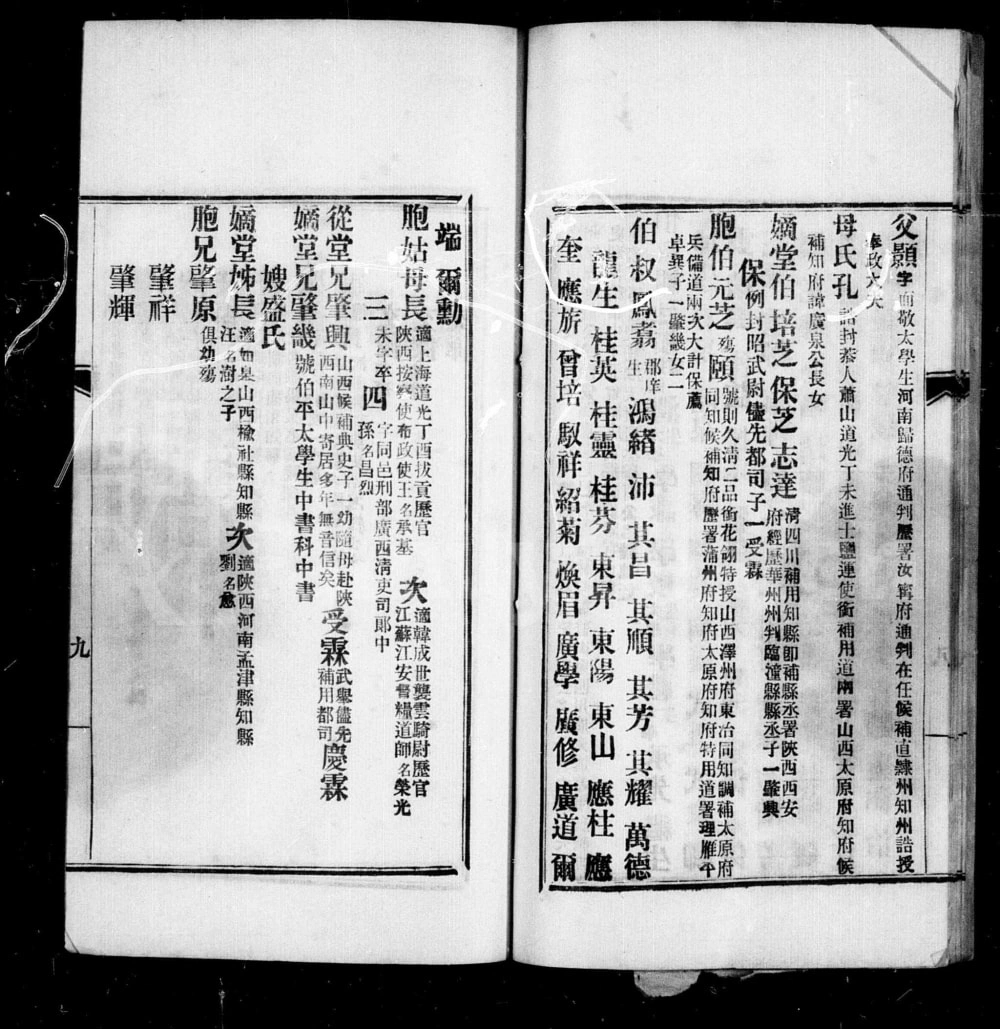 父顥字面敬太學生河南歸德府通判歷署汝寗府通判在任候補直隸州知州誥授
奉政大夫
母氏孔誥封恭人蕭山道光丁未進士鹽運使銜補用道兩署山西太原府知府候
補知府諱廣泉公長女
嫡堂伯培芝保芝志達清四川補用知縣卽補縣丞署陝西西安
府經歷華州州判臨潼縣縣丞子一肇興
保例封昭武尉儘先都司子一受霖
胞伯元芝殤頤號則久清二品銜花翎特授山西澤州府東冶同知調補太原府
同知候補知府歷署蒲州府知府太原府知府特用道署理雁平
兵備道兩次大計保薦
卓異子一肇畿女二
伯叔鳳翥郡庠生鴻緒 沛 其昌 其順 其芳 其耀 萬德
龍生 桂英 桂靈 桂芬 東昇 東陽 東山 應柱 應
奎 應旂 曾培 馭祥 紹菊 煥眉 廣學 廣修 廣道 爾
端 爾勳
胞姑母長適上海道光丁酉拔貢歷官
陝西按察使布政使王名承基
次適韓成世襲雲騎尉歷官
江蘇江安督糧道師名榮光
三未字卒四字同邑刑部廣西清吏司郎中
孫名昌烈
從堂兄肇興山西候補典史子一幼隨母赴陝
西南山中寄居多年無音信矣
受霖武舉儘先
補用都司
慶霖
嫡堂兄肇畿號伯平太學生中書科中書
嫂盛氏
嫡堂姊長適如臯山西楡社縣知縣
汪名澍之子
次適陝西河南孟津縣知縣
劉名愈
胞兄肇原俱幼殤
肇祥
肇輝
九